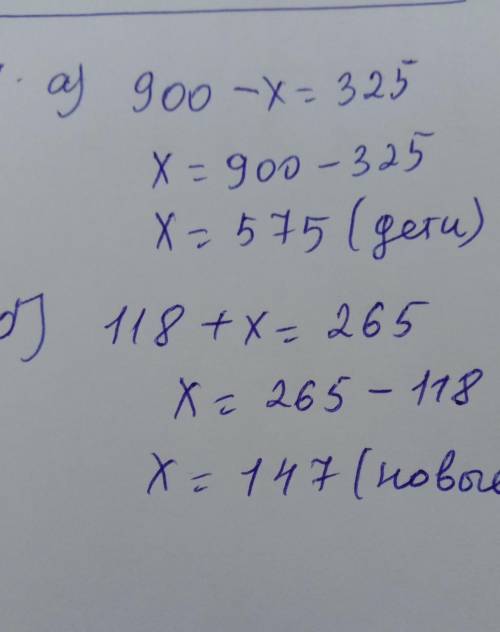 а) 900 - x = 325
x = 900 - 325
x = 575 (дети)
б) 118 + x = 265
x = 265 - 118
x = 147 (новые